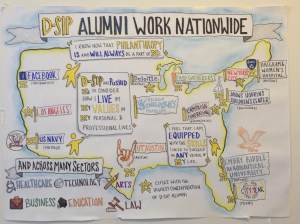 D-SIP ALUMNI WORK NATIONWIDE
I KNOW NOW THAT PHILANTHROPY
IS AND WILL ALWAYS BE A PART OF
FACEBOOK
D-SIP
PUSHED
ME TO CONSIDER
HOW I LIVE MY
VALUES IN
MY PERSONAL &
PROFESSIONAL LIVES
Deloitte.
LOS ANGELES
US NAVY
UT AUSTIN
I FEEL THAT I AM
EQUIPPED
WITH THE SKILLS
ANY
NEW YORK
BRIGHAM &
WOMEN'S
HOSPITAL
EMBRY RIDDLE
AERONAUTICAL
UNIVERSITY
AND ACROSS MANY SECTORS
HEALTHCARE
TECHNOLOGY
ARTS
BUSINESS
EDUCATION
LAW
CITIES WITH THE
HIGHEST CONCENTRATION
OF D-SIP ALUMNI